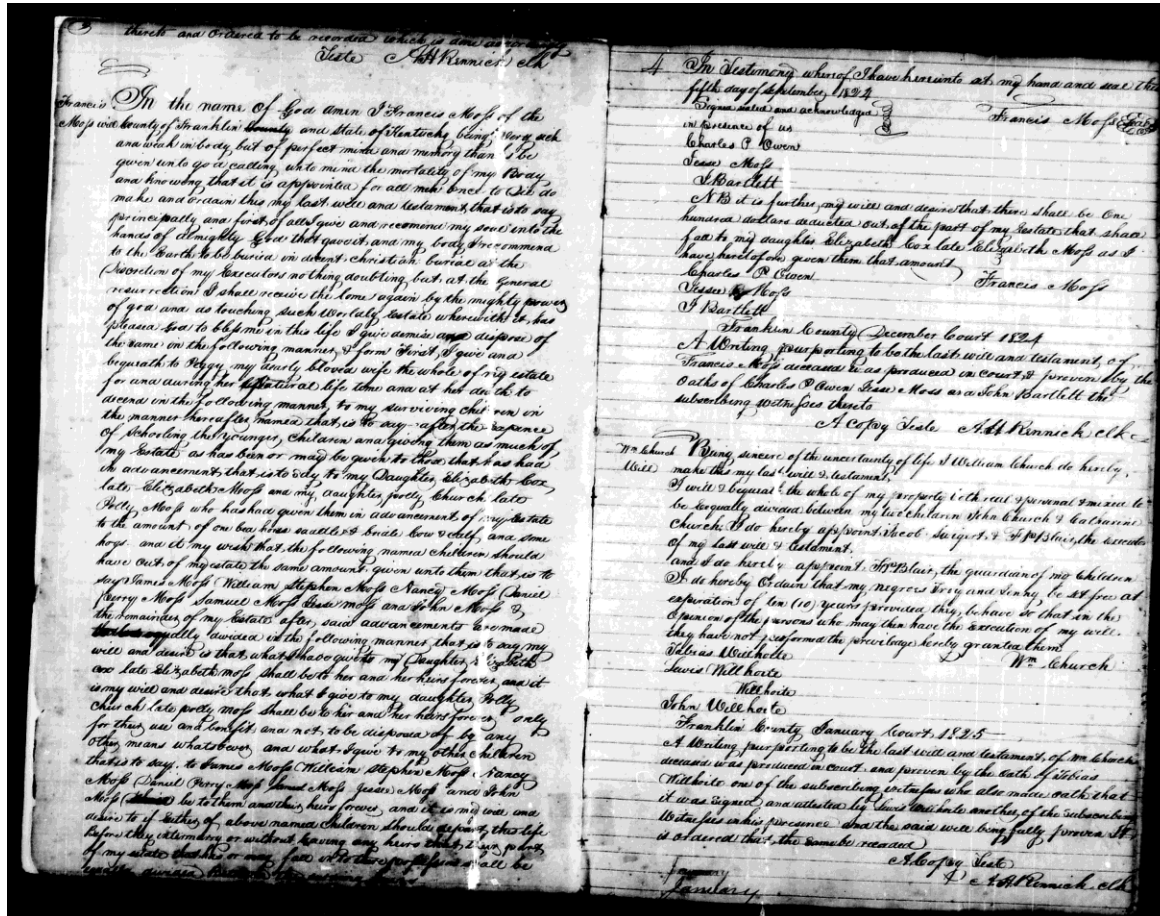 thereto and Ordered to be recorded which is done accordingly
Teste A H Rennick clk
Francis Moss will
In the name of God amen I Francis Moss of the
County of Franklin County and State of Kentucky being very sick
and weak in body but of perfect mind and memory thanks be
given unto god calling unto mind the mortality of my Body
and knowing that it is appointed for all men once to Die do
make and ordain this my last will and testament, that is to say
principally and first of all I give and recomend my soul into the
hands of almighty God that gave it, and my body I recommend
to the Earth to be buried in decent christian burial at the
Discretion of my Executors nothing doubting but at the General
resurrection I shall receive the same again by the mighty power
of god and as touching such Worldly Estate wherewith it has
pleased God to bless me in this life I give demise and dispose of
the same in the following manner & form First, I give and
bequeath to Peggy my dearly bloved wife the whole of my estate
for and during her natural life time and at her deth to
decend in the following manner, to my surviving chil ren in
the manner hereafter named that is to say after the expence
of schooling the younger children and giving them as much of
my Estate as has been or may be given to those that has had
in advancement that is to say to my Daughter Elizabeth Cox,
late Elizabeth Moss and my daughter polly Church late
Polly Moss who has had given them in advancement of my Estate
to the amount of one horse saddle & bridle Cow & calf and some
hogs. and it my wish that the following named children should
have out of my estate the same amount given unto them that is to
say James Moss William Stephen Moss Nancy Moss Daniel
Perry Moss Samuel Moss Jesse Moss and John Moss &
the remainder of my Estate after said advancements are made
equally divided in the following manner, that is to say my
will and desire is that what I have give to my Daughter Elizabeth
cox late Elizabeth moss shall be to her and her heirs forever and it
is my will and desire that what I give to my daughter Polly
Church late polly moss shall be to her and her heirs forever only
for their use and benefit and not to be disposed of by any
other means whatsoever and what I give to my other children
that is to say. to James Moss William Stephen Moss Nancy
Moss Daniel Perry Moss Samuel Moss Jessie Moss and John
Moss be to them and their heirs forever, and it is my will and
desire to if Either of above named children should depart this life
Before they intermarry or without having any heirs that their part
of my estate that has or may fall into there possession shall be
equally divided
4 In Testimony whereof I have hereunto at my hand and seal this
fifth day of September, 1824
Signed sealed and acknowledged
in presence of us
Francis Moss Seal
Charles P Owen
Jesse Moss
J Bartlett
NB it is further my will and desire that there shall be One
hundred dollars deducted out of the part of my Estate that shall
fall to my daughter Elizabeth Cox late Elizabeth Moss as I
have heretofore given them that amount
Charles P Owen
Francis Moss
Jessee Moss
J Bartlett
Franklin County December Court 1824
A Writing pourporting to be the last will and testament, of
Francis Moss deceased was produced in court, & proven by the
Oaths of Charles P Owen Jesse Moss and John Bartlett the
subscribing witnesses thereto
A Copy Teste A H Rennick clk
Wm Church Will
Being sencere of the uncertainty of life I William Church do hereby,
make this my last will & testament,
I will & bequeath the whole of my property both real & personal & mixed to
be Eequally divided between my two children John Church & Catharine
Church. I do hereby appoint Jacob Swigert & F P Blair, the executors
of my last will & testament.
and I do hereby appoint F P Blair, the guardian of mo Children
I do hereby Ordain that my negroes and Jinny be set free at
expiration of ten (10) years provided they, behave so that in the
Opinion of the persons who may then have the Execution of my will
they have not performed the previlage hereby granted them
Tobias Willhoite
Wm Church
Lewis Willhoite
Willhoite
John Willhoite
Franklin County January Court 1825
A Writing purporting to be the last will and testament, of Wm Church
deceased was produced in court and proven by the Oath of Tobias
Willhoite one of the subscribing witnesses who also made oath that
it was signed and attested by Lewis Willhoite another of the subscribing
Witnesses in his presence and the said will being fully proven It
is ordered that the same be recorded
A Copy Teste
A H Rennick clk
January
January